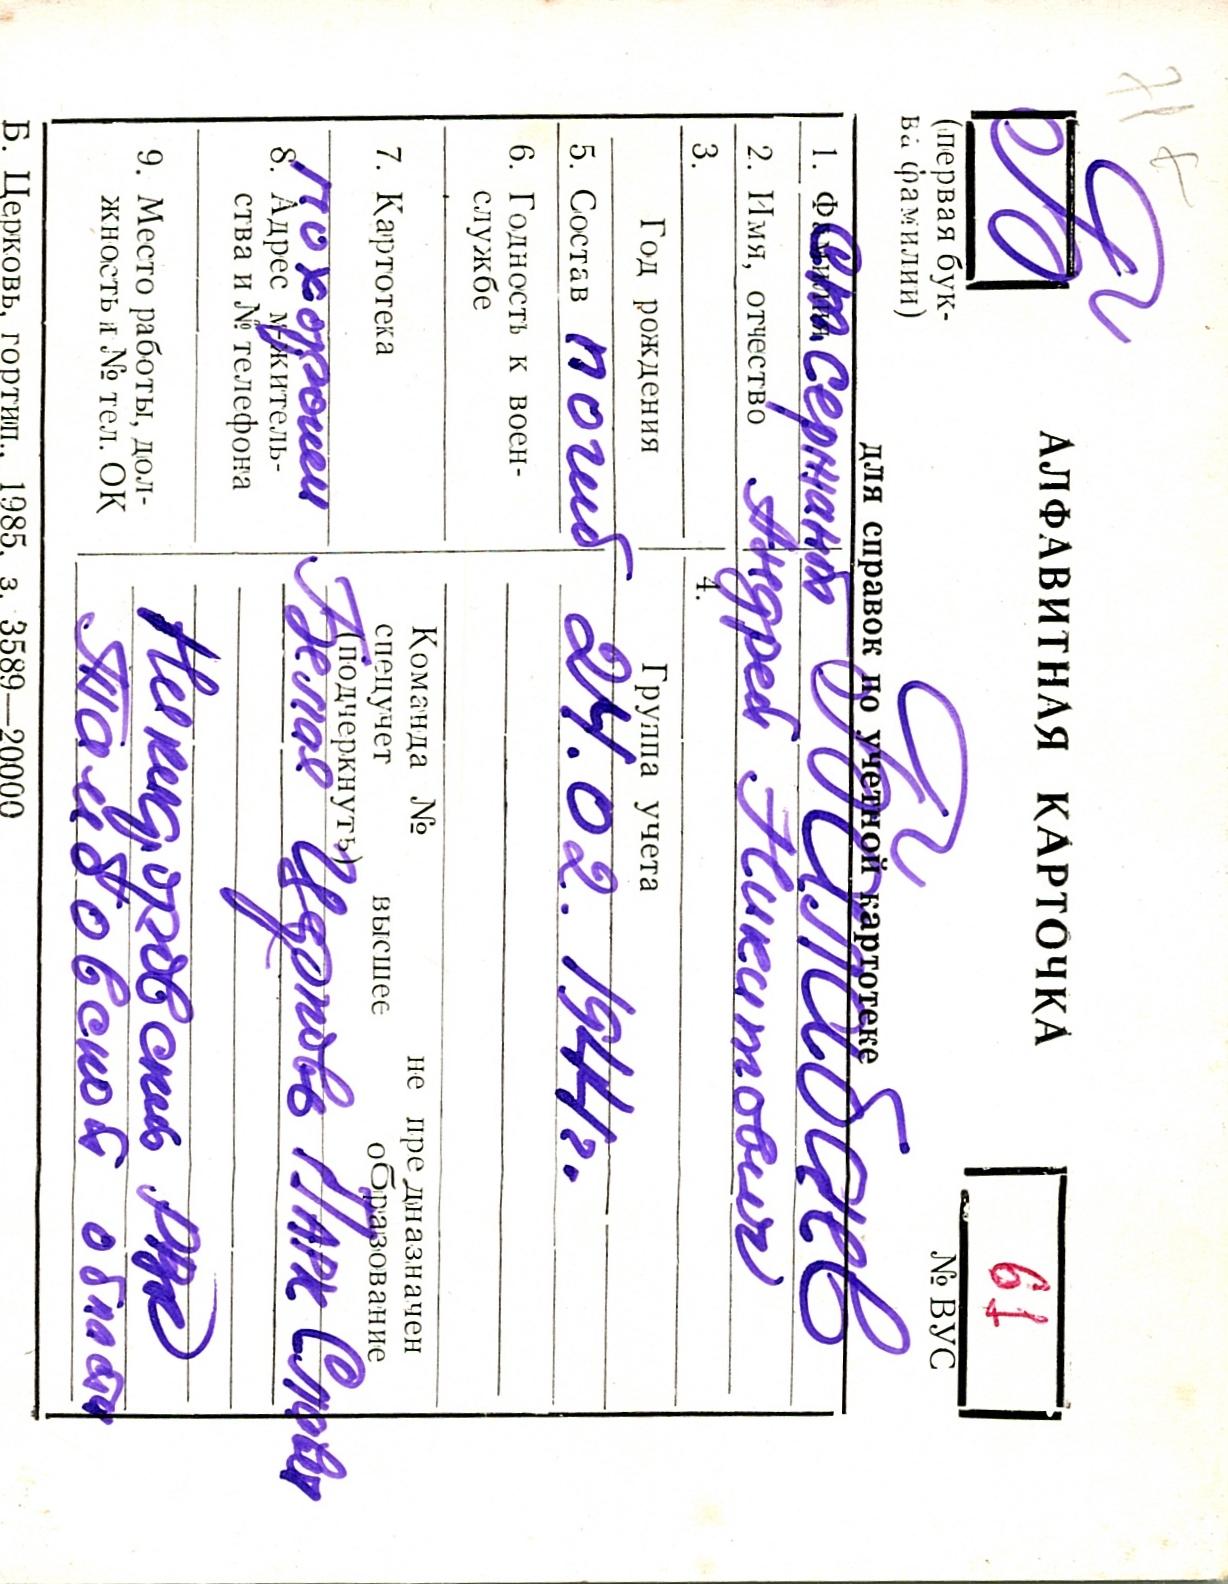 АЛФАВИТНАЯ КАРТОЧКА
61
(первая бук-
ва фамилии)
№ ВУС
для справок по учетной картотеке
1. Фамилия сержант
2. Имя, отчество Андрей Никитович
3.
4.
Год рождения
Группа учета
5. Состав погиб 24.02.1944г.
6. Годность к воен-
службе
7. Картотека
Команда № не предназначен
спецучет высшее образование
(подчеркнуть)
похоронен Белая Церковь Парк Славы
8. Адрес м-житель-
ства и № телефона
9. Место работы, дол-
жность и № тел. ОК
РВК
Тамбовской области
Б. Церковь, гортип., 1985, з. 3589—20000